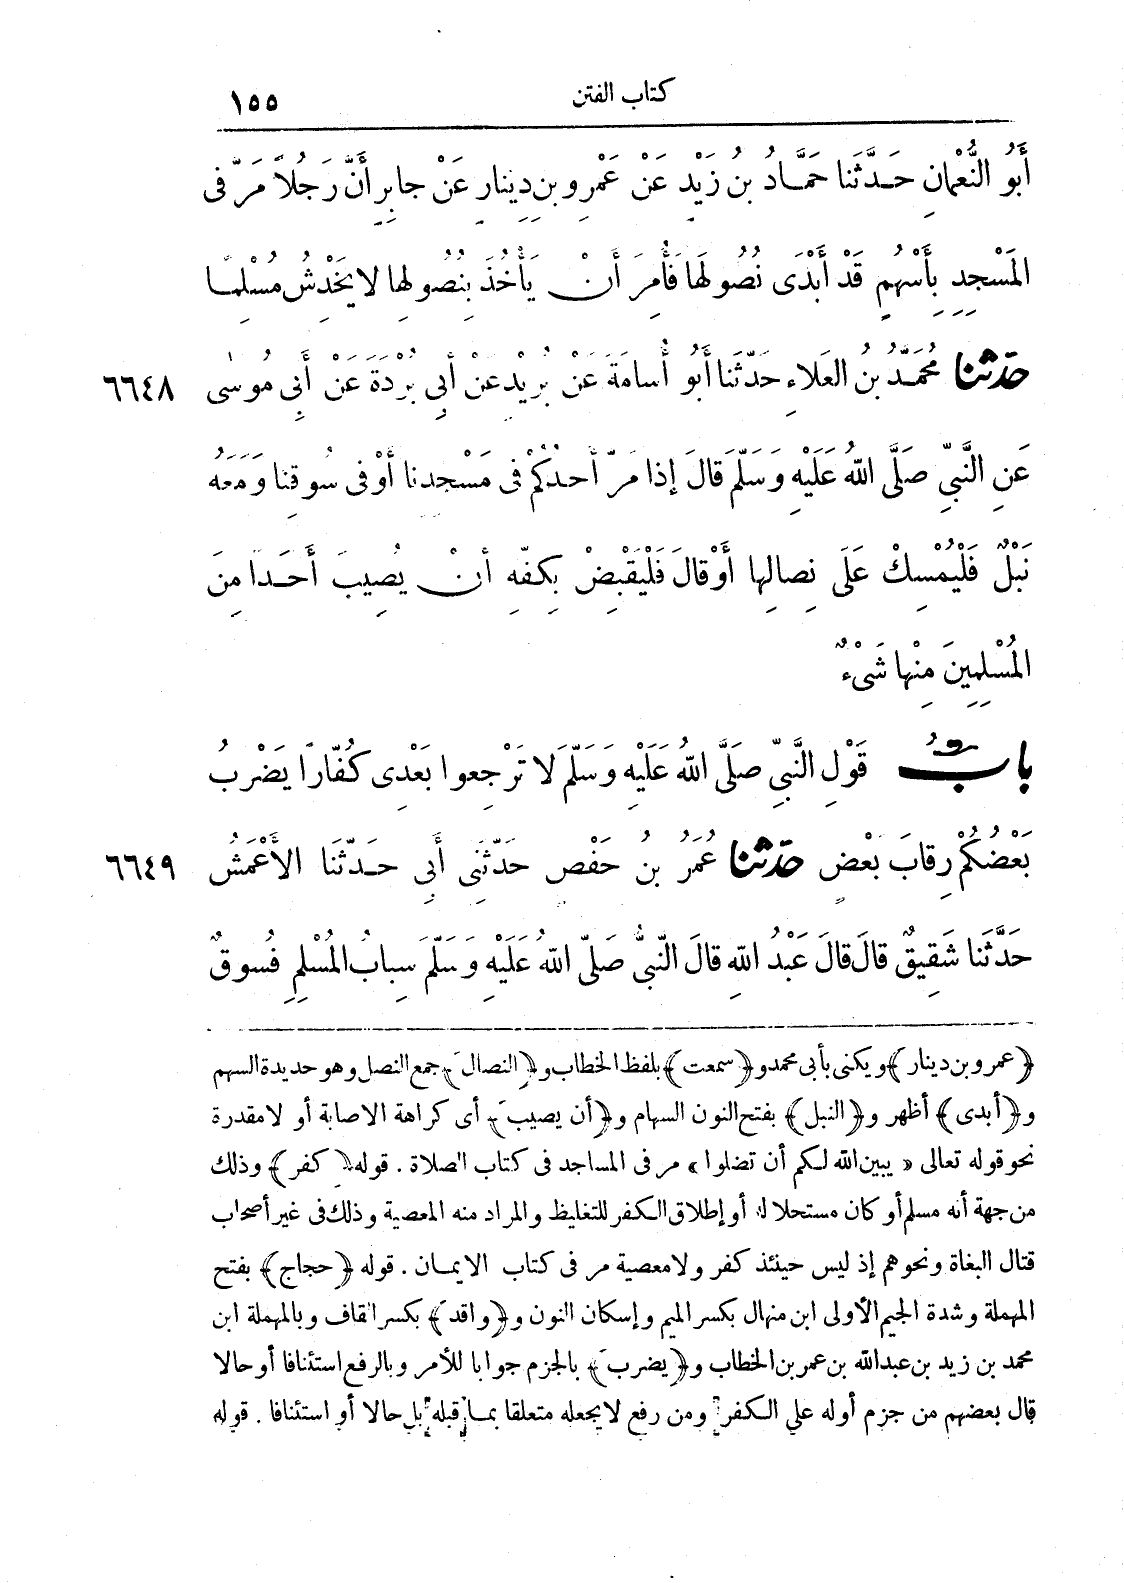 كتاب الفتن ١٥٥
أَبُو النُّعْمَانِ حَدَّثَنَا حَمَّادُ بْنُ زَيْدٍ عَنْ عَمْرِو بْنِ دِينَارٍ عَنْ جَابِرٍ أَنَّ رَجُلًا مَرَّ فِى
الْمَسْجِدِ بِأَسْهُمٍ قَدْ أَبْدَى نُصُولَهَا فَأُمِرَ أَنْ يَأْخُذَ بِنُصُولِهَا لَا يَخْدِشُ مُسْلِمًا
حَدَّثَنَا مُحَمَّدُ بْنُ الْعَلَاءِ حَدَّثَنَا أَبُو أُسَامَةَ عَنْ بُرَيْدٍ عَنْ أَبِى بُرْدَةَ عَنْ أَبِى مُوسَى ٦٦٤٨
عَنِ النَّبِىِّ صَلَّى اللهُ عَلَيْهِ وَسَلَّمَ قَالَ إِذَا مَرَّ أَحَدُكُمْ فِى مَسْجِدِنَا أَوْ فِى سُوقِنَا وَمَعَهُ
نَبْلٌ فَلْيُمْسِكْ عَلَى نِصَالِهَا أَوْ قَالَ فَلْيَقْبِضْ بِكَفِّهِ أَنْ يُصِيبَ أَحَدًا مِنَ
الْمُسْلِمِينَ مِنْهَا شَىْءٌ
بَابُ قَوْلِ النَّبِىِّ صَلَّى اللهُ عَلَيْهِ وَسَلَّمَ لَا تَرْجِعُوا بَعْدِى كُفَّارًا يَضْرِبُ
بَعْضُكُمْ رِقَابَ بَعْضٍ حَدَّثَنَا عُمَرُ بْنُ حَفْصٍ حَدَّثَنِى أَبِى حَدَّثَنَا الْأَعْمَشُ ٦٦٤٩
حَدَّثَنَا شَقِيقٌ قَالَ قَالَ عَبْدُ اللهِ قَالَ النَّبِىُّ صَلَّى اللهُ عَلَيْهِ وَسَلَّمَ سِبَابُ الْمُسْلِمِ فُسُوقٌ
﴿عمرو بن دينار﴾ ويكنى بأبى محمد و﴿سمعت﴾ بلفظ الخطاب و﴿النصال﴾ جمع النصل وهو حديدة السهم
و﴿أبدى﴾ أظهر و﴿النبل﴾ بفتح النون السهام و﴿أن يصيب﴾ أى كراهة الاصابة أو لا مقدرة
نحو قوله تعالى «يبين الله لكم أن تضلوا» مر فى المساجد فى كتاب الصلاة . قوله ﴿كفر﴾ وذلك
من جهة أنه مسلم أو كان مستحلا له أو إطلاق الكفر للتغليظ والمراد منه المعصية وذلك فى غير أصحاب
قتال البغاة ونحوهم إذ ليس حينئذ كفر ولا معصية مر فى كتاب الايمان . قوله ﴿حجاج﴾ بفتح
المهملة وشدة الجيم الأولى ابن منهال بكسر الميم وإسكان النون و﴿واقد﴾ بكسر القاف وبالمهملة ابن
محمد بن زيد بن عبد الله بن عمر بن الخطاب و﴿يضرب﴾ بالجزم جوابا للأمر وبالرفع استئنافا أو حالا
قال بعضهم من جزم أوله على الكفر ومن رفع لا يجعله متعلقا بما قبله بل حالا أو استئنافا . قوله